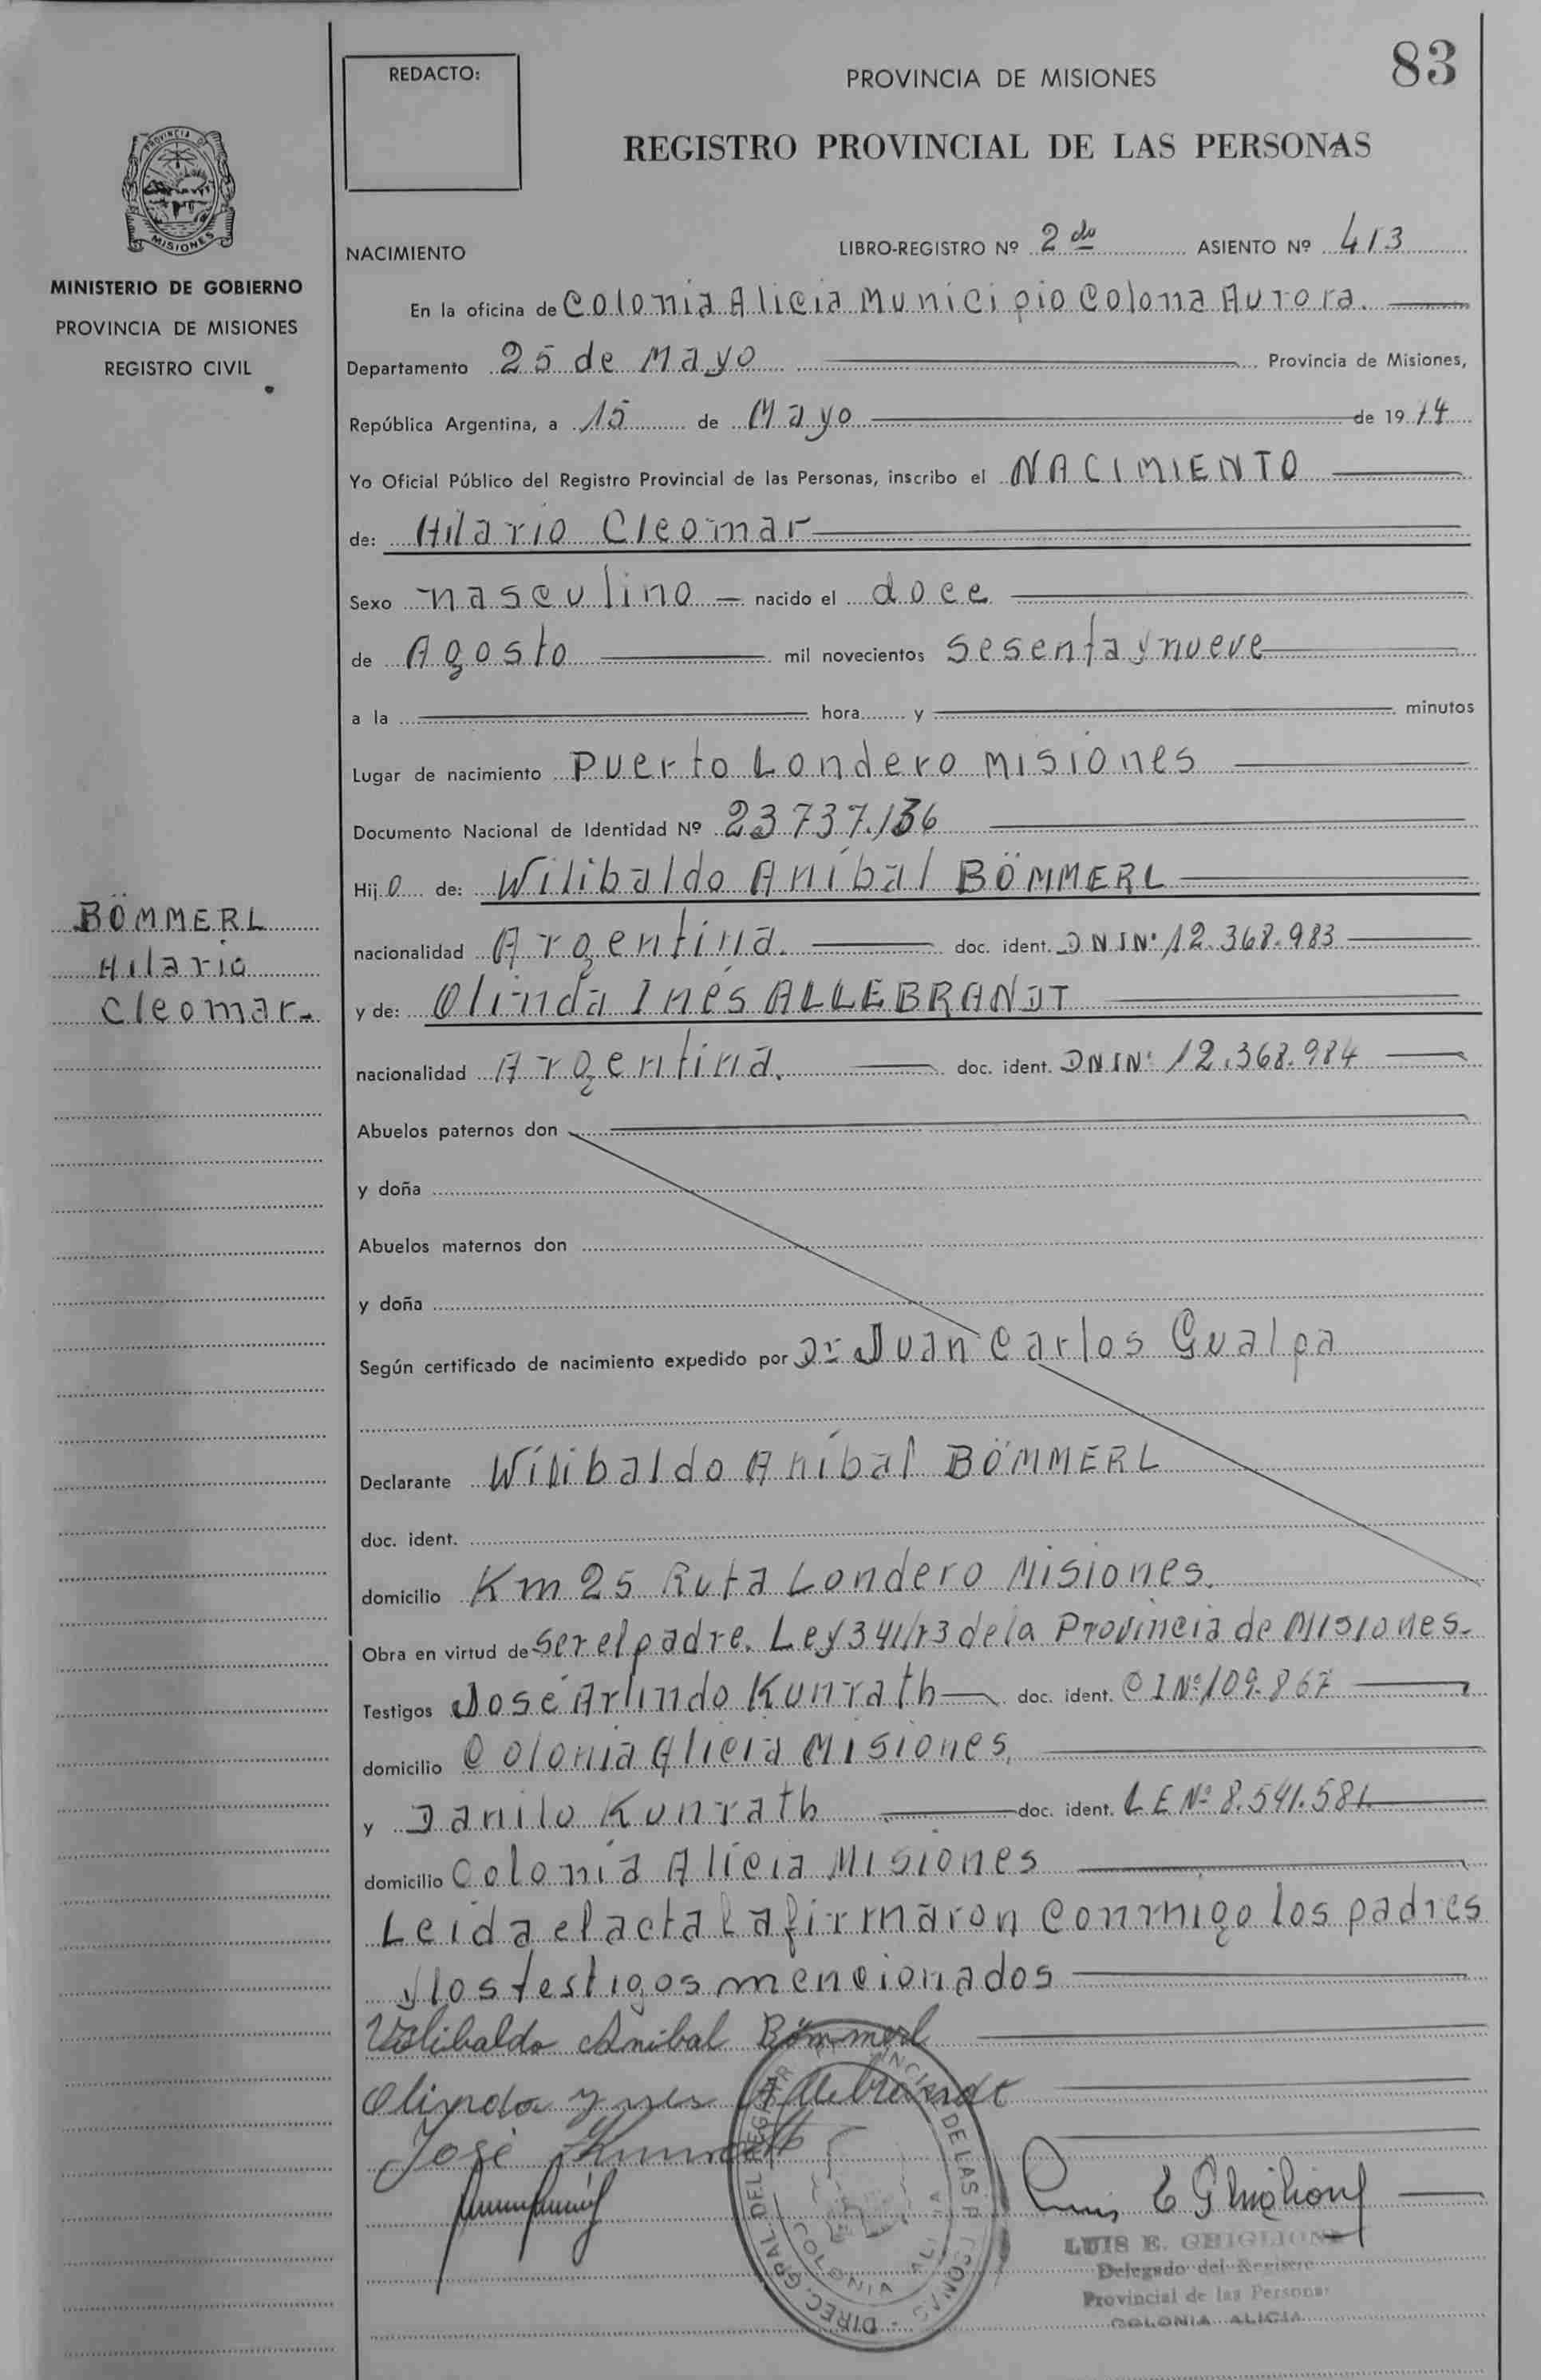 83
REDACTO:
PROVINCIA DE MISIONES
REGISTRO PROVINCIAL DE LAS PERSONAS
PROVINCIA D
MISIONES
MINISTERIO DE GOBIERNO
PROVINCIA DE MISIONES
REGISTRO CIVIL
NACIMIENTO LIBRO-REGISTRO Nº 2do ASIENTO Nº 413
En la oficina de Colonia Alicia Municipio Colonia Aurora.
Departamento 25 de Mayo Provincia de Misiones,
República Argentina, a 15 de Mayo de 1974
Yo Oficial Público del Registro Provincial de las Personas, inscribo el NACIMIENTO
de: Hilario Cleomar
Sexo masculino nacido el doce
de Agosto mil novecientos sesenta y nueve
a la hora y minutos
Lugar de nacimiento Puerto Londero Misiones
Documento Nacional de Identidad Nº 23737.136
Hijo de: Wilibaldo Aníbal BÖMMERL
nacionalidad Argentina. doc. ident. DNI Nº 12.368.983
BÖMMERL
Hilario
Cleomar.
y de: Olinda Inés ALLEBRANDT
nacionalidad Argentina. doc. ident. DNI Nº 12.368.984
Abuelos paternos don
y doña
Abuelos maternos don
y doña
Según certificado de nacimiento expedido por Dr Juan Carlos Gualpa
Declarante Wilibaldo Aníbal BÖMMERL
doc. ident.
domicilio Km 25 Ruta Londero Misiones.
Obra en virtud de ser el padre. Ley 341/73 de la Provincia de Misiones.
Testigos José Arlindo Kunrath doc. ident. CI Nº 109.867
domicilio Colonia Alicia Misiones,
y Danilo Kunrath doc. ident. LE Nº 8.541.581
domicilio Colonia Alicia Misiones
Leida el acta la firmaron conmigo los padres
y los testigos mencionados
Wilibaldo Anibal Bömmerl
Olinda Ynes Allebrandt
José Kunrath
Luis E Ghiglione
LUIS E. GHIGLIONE
Delegado del Registro
Provincial de las Personas
COLONIA ALICIA
DIREC. GRAL DEL REGISTRO PROVINCIAL DE LAS PERSONAS
COLONIA ALICIA